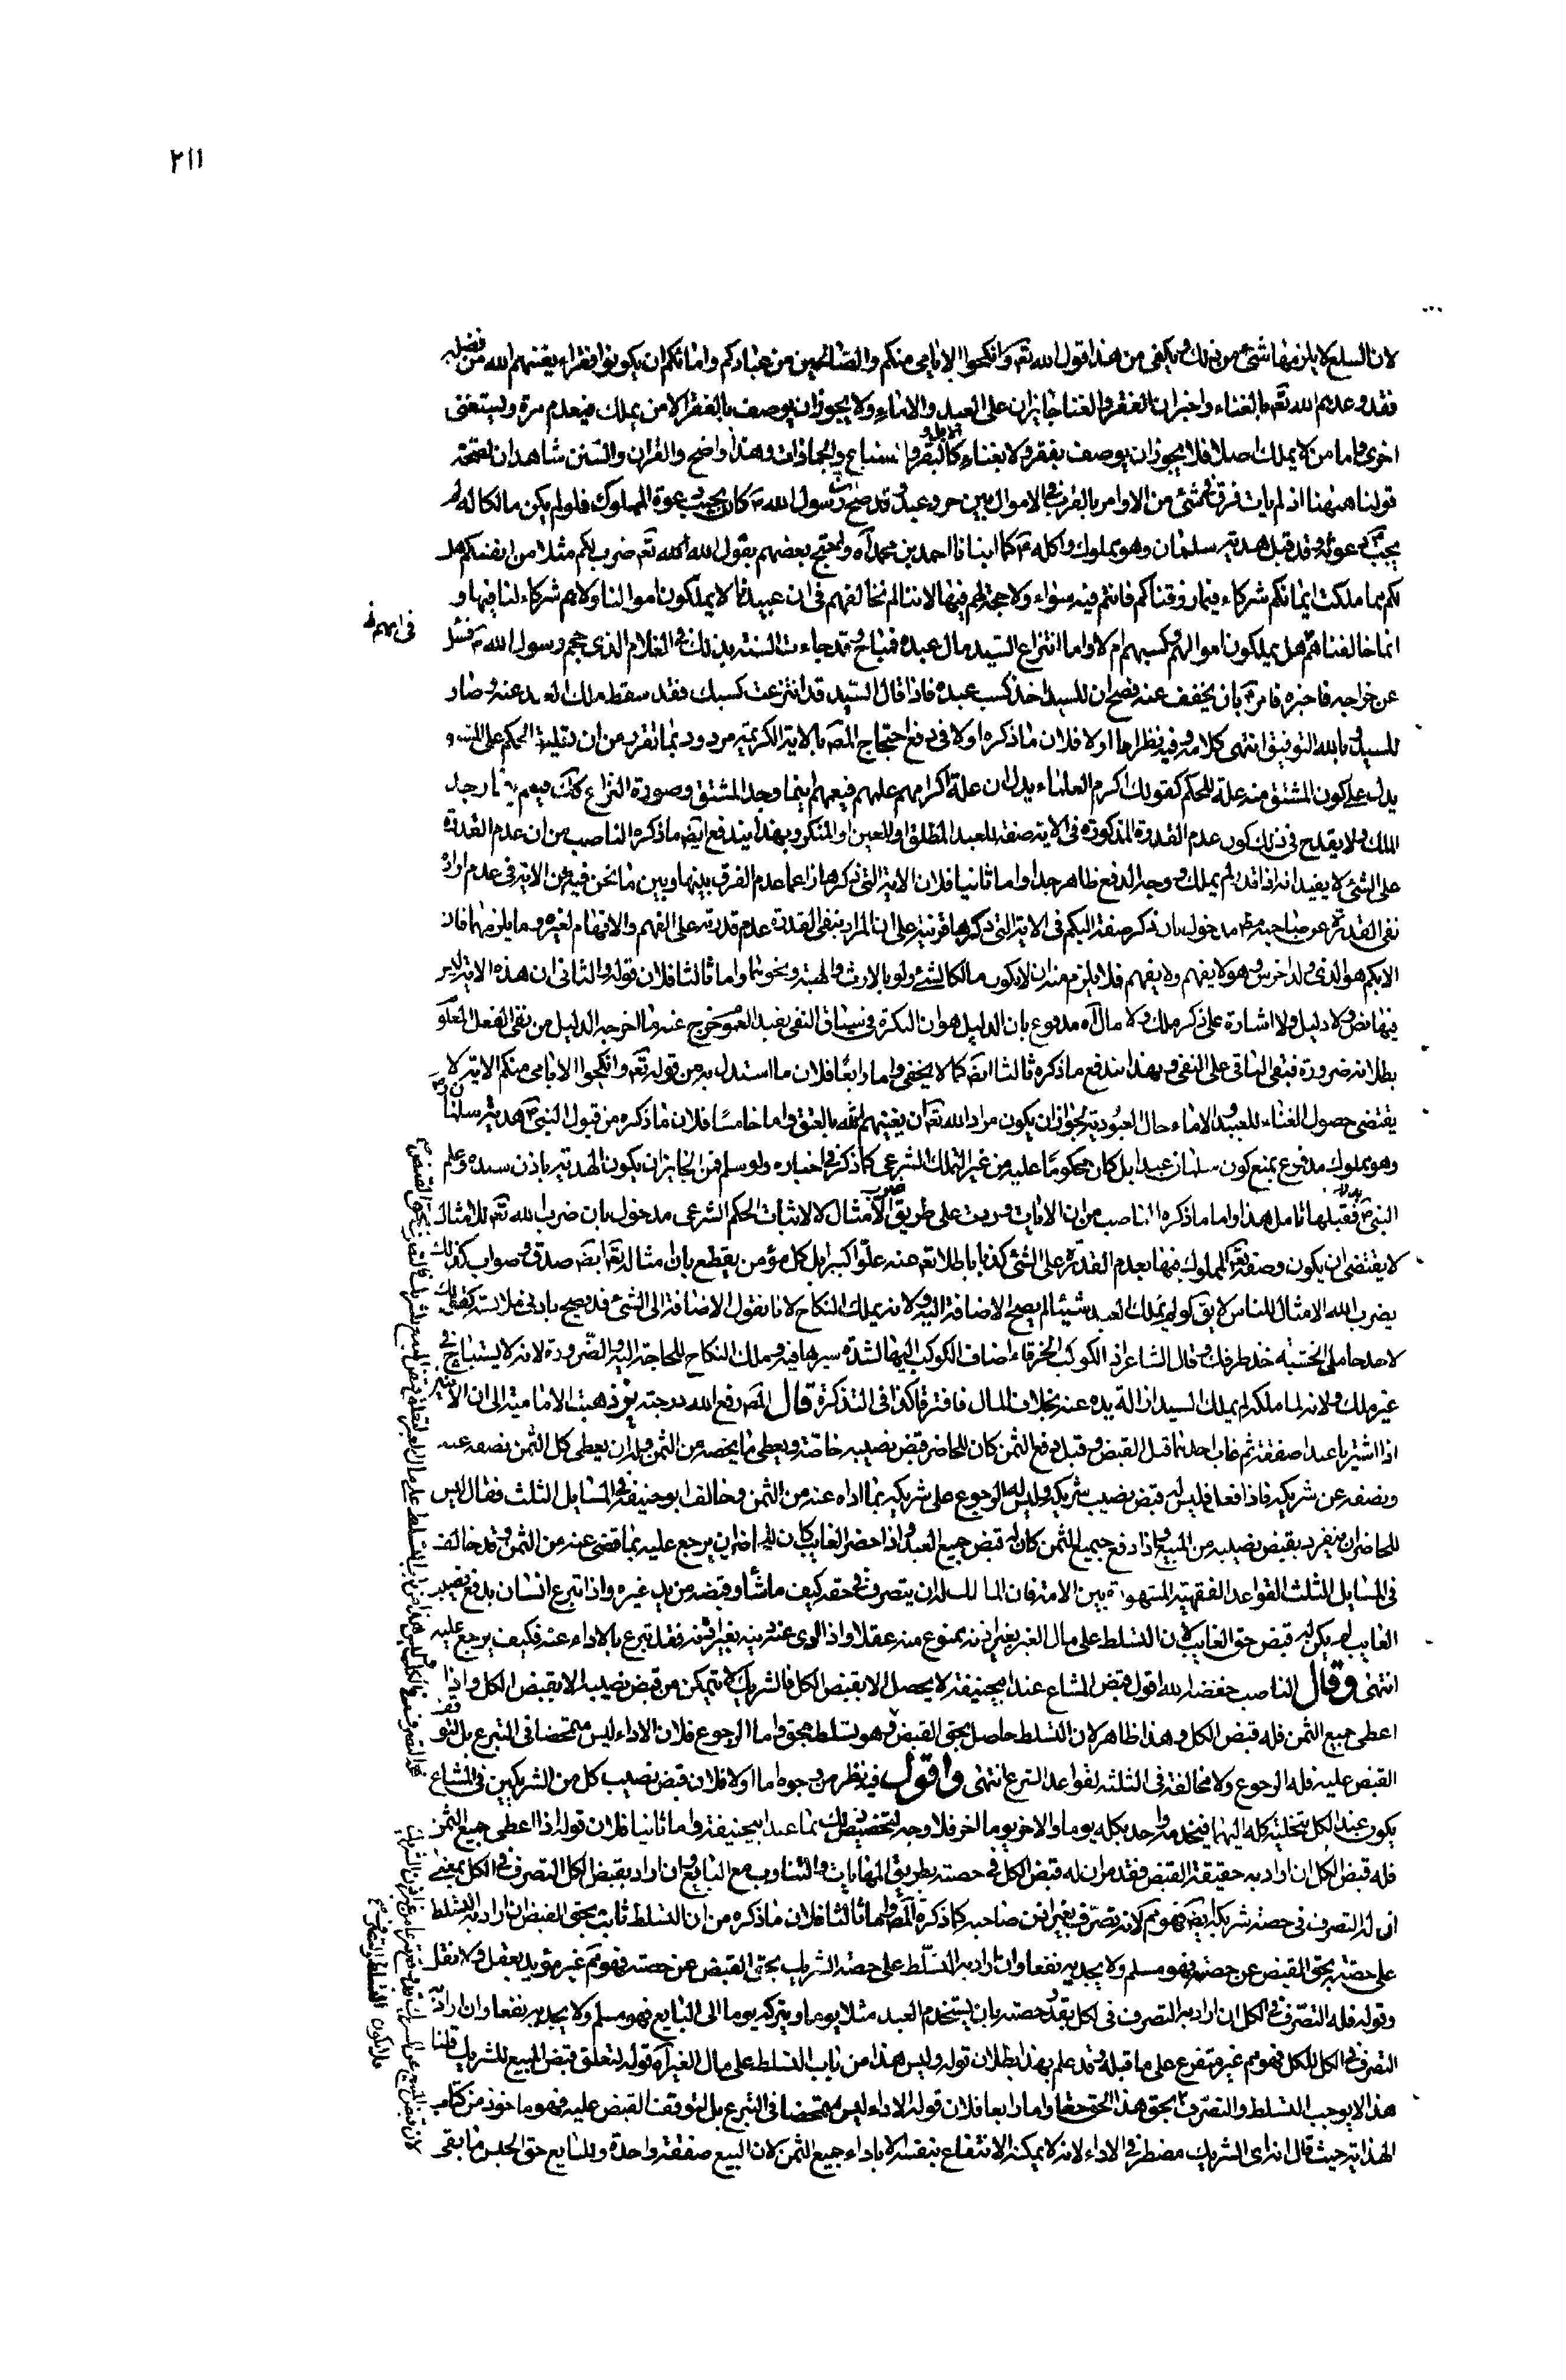 ٢١١
لان السلع لا يلزمها شئ من ذلك ويكفى من هذا قول الله تعه وانكحوا الايامى منكم والصالحين من عبادكم وامائكم ان يكونوا فقراء يغنهم الله من فضله
فقد وعدهم الله تعه بالغناء واخبر ان الفقر والغنا جايزان على العبيد والاماء ولا يجوز ان يوصف بالفقر الا من يملك فيعدم مرة ويستغنى
اخرى واما من لا يملك اصلا فلا يجوز ان يوصف بفقر ولا بغناء كالبقر والسباع والجمادات وهذا واضح والقران والسنن شاهدان لصحة
قولنا ههنا اذ لم يات فرق فى شئ من الاوامر بالفرق فى الاموال بين حر وعبد وقد صح ان رسول الله ص كان يجيب دعوة المملوك فلو لم يكن مالكا له لم
يجب دعوته وقد قبل هدية سلمان وهو مملوك واكله كما انبانا احمد بن محمد آه واحتج بعضهم بقول الله تعه ضرب لكم مثلا من انفسكم هل
لكم مما ملكت ايمانكم شركاء فيما رزقناكم فانتم فيه سواء ولا حجة لهم فيها لاننا لم نخالفهم فى ان عبيدنا لا يملكون اموالنا ولا هم شركاء لنا فيها و
انما خالفناهم هل يملكون اموالهم وكسبهم ام لا واما انتزاع السيد مال عبده فمباح وقد جاءت السنة بذلك فى الغلام الذى حجم رسول الله ص فسئل
عن خراجه فاخبره فامر بان يخفف عنه فصح ان للسيد اخذ كسب عبده فاذا قال السيد قد انتزعت كسبك فقد سقط ملك العبد عنه وصار
للسيد وبالله التوفيق انتهى كلامه وفيه نظر اما اولا فلان ما ذكره اولا فى دفع احتجاج المصه بالاية الكريمة مردود بما تقرر من ان تعليق الحكم على المشتق
يدل على كون المشتق منه علة للحكم كقولك اكرم العلماء يدل ان علة اكرامهم علمهم فيعمهم اينما وجد المشتق وصورة النزاع كك فيعم
الملك ولا يقدح فى ذلك كون عدم القدرة المذكورة فى الاية صفة للعبد المطلق او المعين او المنكر وبهذا يندفع ايضا ما ذكره الناصب من ان عدم القدرة
على الشئ لا يفيد انه اذا قدر لم يملك ووجه الدفع ظاهر جدا واما ثانيا فلان الاية التى ذكرها زاعما عدم الفرق بينها وبين ما نحن فيه من الاية فى عدم ارادة
نفى القدرة عن صاحبه مدخول بان ذكر صفة البكم فى الاية التى ذكرها قرينة على ان المراد بنفى القدرة عدم قدرته على الفهم والافهام لغيره وما يلزمهما فان
الابكم هو الذى ولد اخرس وهو لا يفهم ولا يفهم فلا يلزم منه ان لا يكون مالكا لشئ ولو بالارث والهبة ونحوهما واما ثالثا فلان قوله والثانى ان هذه الاية ليس
فيها نص ولا دليل ولا اشارة على ذكر ملك ولا مال آه مدفوع بان الدليل هو ان النكرة فى سياق النفى يفيد العموم خرج عنه ما اخرجه الدليل من نفى الفعل المعلوم
بطلانه ضرورة فبقى الباقى على النفى وبهذا يندفع ما ذكره ثالثا ايضا كما لا يخفى واما رابعا فلان ما استدل به من قوله تعه وانكحوا الايامى منكم الاية لا
يقتضى حصول الغناء للعبيد والاماء حال العبودية لجواز ان يكون مراد الله تعه ان يغنيهم الله بالعتق واما خامسا فلان ما ذكره من قبول النبى ص هدية سلمان
وهو مملوك مدفوع بمنع كون سلمان عبدا بل كان محكوما عليه من غير التملك الشرعى كما ذكر فى اخباره ولو سلم فمن الجايز ان يكون الهدية باذن سيده وعلم
النبى ص فقبلها تامل هذا واما ما ذكره الناصب من ان الايات وردت على طريق ضرب الامثال لا لاثبات الحكم الشرعى مدخول بان ضرب الله تعه للامثال
لا يقتضى ان يكون وصفه تعه المملوك فيها بعدم القدرة على الشئ كذبا باطلا تعه عنه علوا كبيرا بل كل مؤمن يقطع بان امثاله تعه ايضا صدق وصواب كذلك
يضرب الله الامثال للناس لا يق كو لم يملك العبد شيئا لم يصح الاضافة اليه ولانه يملك النكاح لانا نقول الاضافة الى الشئ قد يصح بادنى ملابسة كقولك
لاحد حاملى الخشبة خذ طرفك وقال الشاعر اذا الكوكب الخرقاء اضاف الكوكب اليها لشدة سيرها فيه وملك النكاح للحاجة اليه والضرورة لانه لا يستباح فى
غير ملك ولانه لما ملكه لم يملك السيد ازالة يده عنه بخلاف المال فافترقا كذا فى التذكرة قال المصه رفع الله درجته يز ذهبت الامامية الى ان الاثنين
اذا اشتريا عبدا صفقة ثم غاب احدهما قبل القبض وقبل دفع الثمن كان للحاضر قبض نصيبه خاصة ويعطى ما يخصه من الثمن وله ان يعطى كل الثمن نصفه عنه
ونصفه عن شريكه فاذا فعل فليس له قبض نصيب شريكه وليس له الرجوع على شريكه بما اداه عنه من الثمن وخالف ابو حنيفة فى المسايل الثلث فقال ليس
للحاضر ان ينفرد بقبض نصيبه من المبيع واذا دفع جميع الثمن كان له قبض جميع العبد واذا حضر الغايب كان له ان يرجع عليه بما قضى عنه من الثمن وقد خالف
فى المسايل الثلث القواعد الفقهية المشهورة بين الامة فان المالك له ان يتصرف فى حقه كيف ما شاء وقبضه من يد غيره واذا تبرع انسان بدفع نصيب
الغايب لم يكن له قبض حق الغايب لان التسلط على مال الغير بغير اذنه ممنوع منه عقلا واذا ادى عنه دينه بغير اذنه فقد تبرع بالاداء عنه فكيف يرجع عليه
انتهى وقال الناصب خفضه الله اقول قبض المشاع عند ابيحنيفة لا يحصل الا بقبض الكل فالشريك لا يتمكن من قبض نصيبه الا بقبض الكل واذا
اعطى جميع الثمن فله قبض الكل وهذا ظاهر لان التسلط حاصل بحق القبض وهو تسلط بحق واما الرجوع فلان الاداء ليس متمحضا فى التبرع بل لتوقف
القبض عليه فله الرجوع ولا مخالفة فى الثلثة لقواعد الشرع انتهى واقول فيه نظر من وجوه اما اولا فلان قبض نصيب كل من الشريكين فى المشاع
يكون عند الكل بتخلية كله اليهما فيخدمه واحد بكله يوما والاخر يوما اخر فلا وجه لتخصيص ذلك بما عند ابيحنيفة واما ثانيا فلان قوله اذا اعطى جميع الثمن
فله قبض الكل ان اراد به حقيقة القبض فقد مر ان له قبض الكل فى حصته بطريق المهايات والتناوب مع البايع وان اراد بقبض الكل التصرف فى الكل بمعنى
ان له التصرف فى حصة شريكه ايضا فهو مم لانه تصرف بغير اذن صاحبه كما ذكره المصه واما ثالثا فلان ما ذكره من ان التسلط ثابت بحق القبض ان اراد به التسلط
على حصته بحق القبض عن حصته فهو مسلم ولا يجديه نفعا وان اراد به التسلط على حصة الشريك بحق القبض عن حصته فهو مم غير مؤيد بعقل ولا نقل
وقوله فله التصرف فى الكل ان اراد به التصرف فى الكل بقدر حصته بان يستخدم العبد مثلا يوما ويتركه يوما الى البايع فهو مسلم ولا يجديه نفعا وان اراد به
التصرف فى الكل للكل فهو مم غير متفرع على ما قبله وقد علم بهذا بطلان قوله وليس هذا من باب التسلط على مال الغير آه قوله لتعلق قبض المبيع للشريك قلنا
هذا لا يوجب التسلط والتصرف بحق هذا الحق حقا واما رابعا فلان قوله الاداء ليس متمحضا فى التبرع بل لتوقف القبض عليه فهو ماخوذ من كتاب
الهداية حيث قال انه اى الشريك مضطر فى الاداء لانه لا يمكنه الانتفاع بنفسه الا باداء جميع الثمن لان البيع صفقة واحدة وللبايع حق الحبس ما بقى